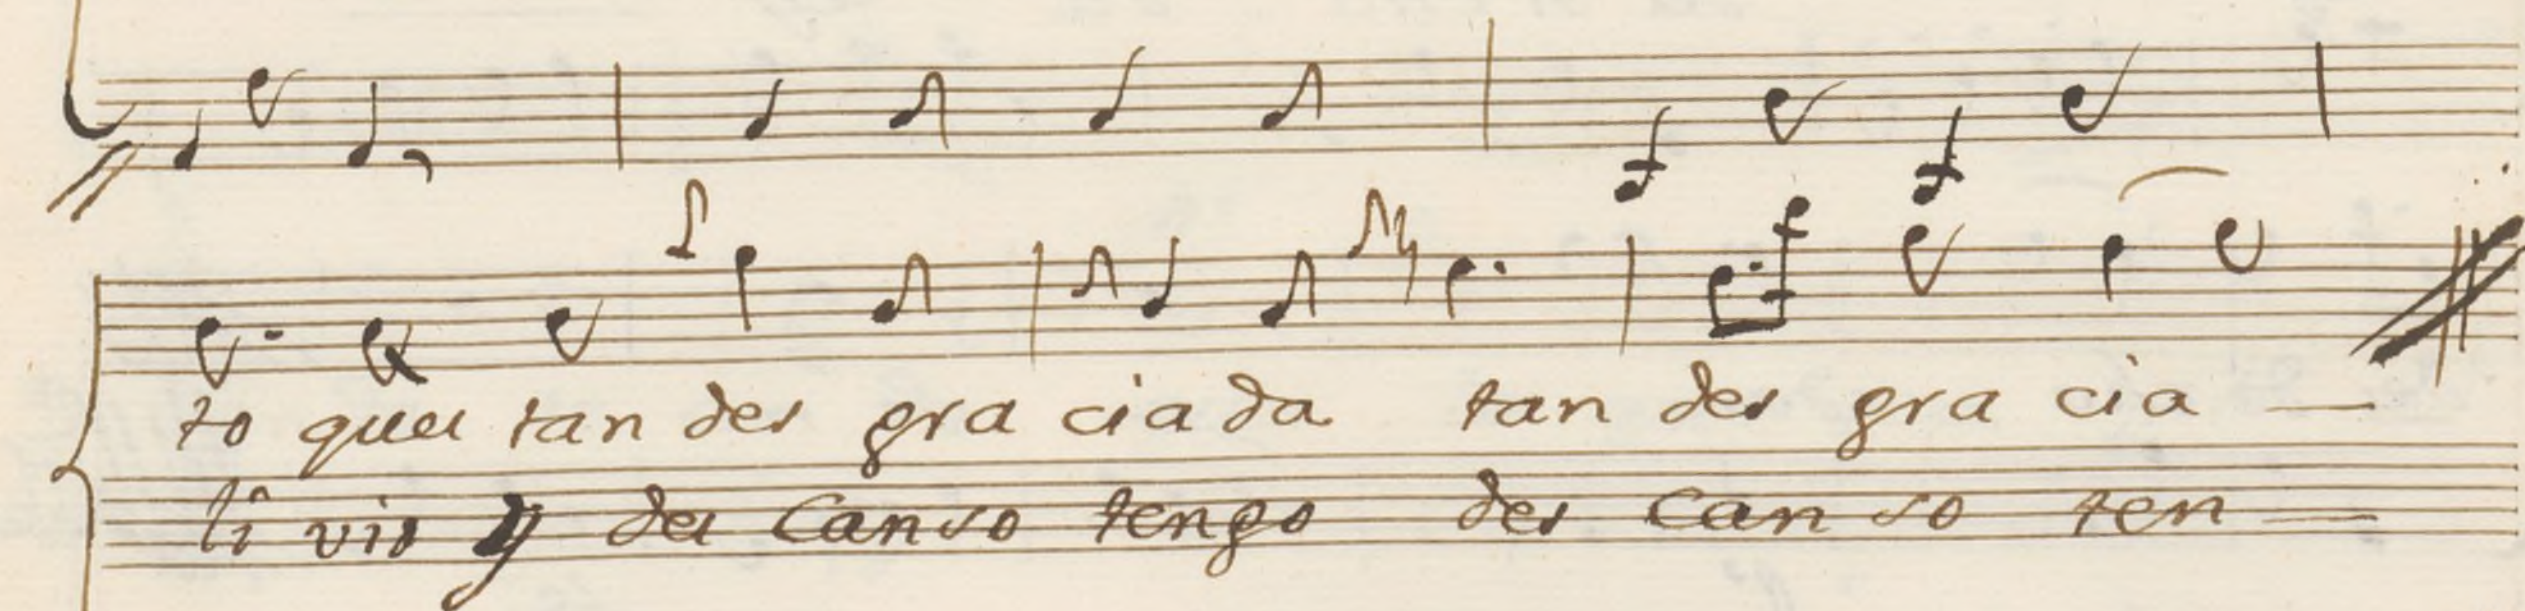 to que es tan des gra cia da tan des gra cia —
li vio y des Canso tengo des can so ten —